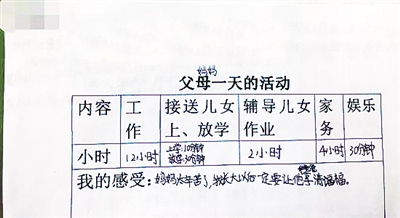 妈妈
父母一天的活动
内容 工作 接送儿女上、放学 辅导儿女作业 家务 娱乐
小时 12小时 上学:10分钟 放学:30分钟 2小时 4小时 30分钟
我的感受:妈妈太辛苦了,我长大以后一定要让他享清福。